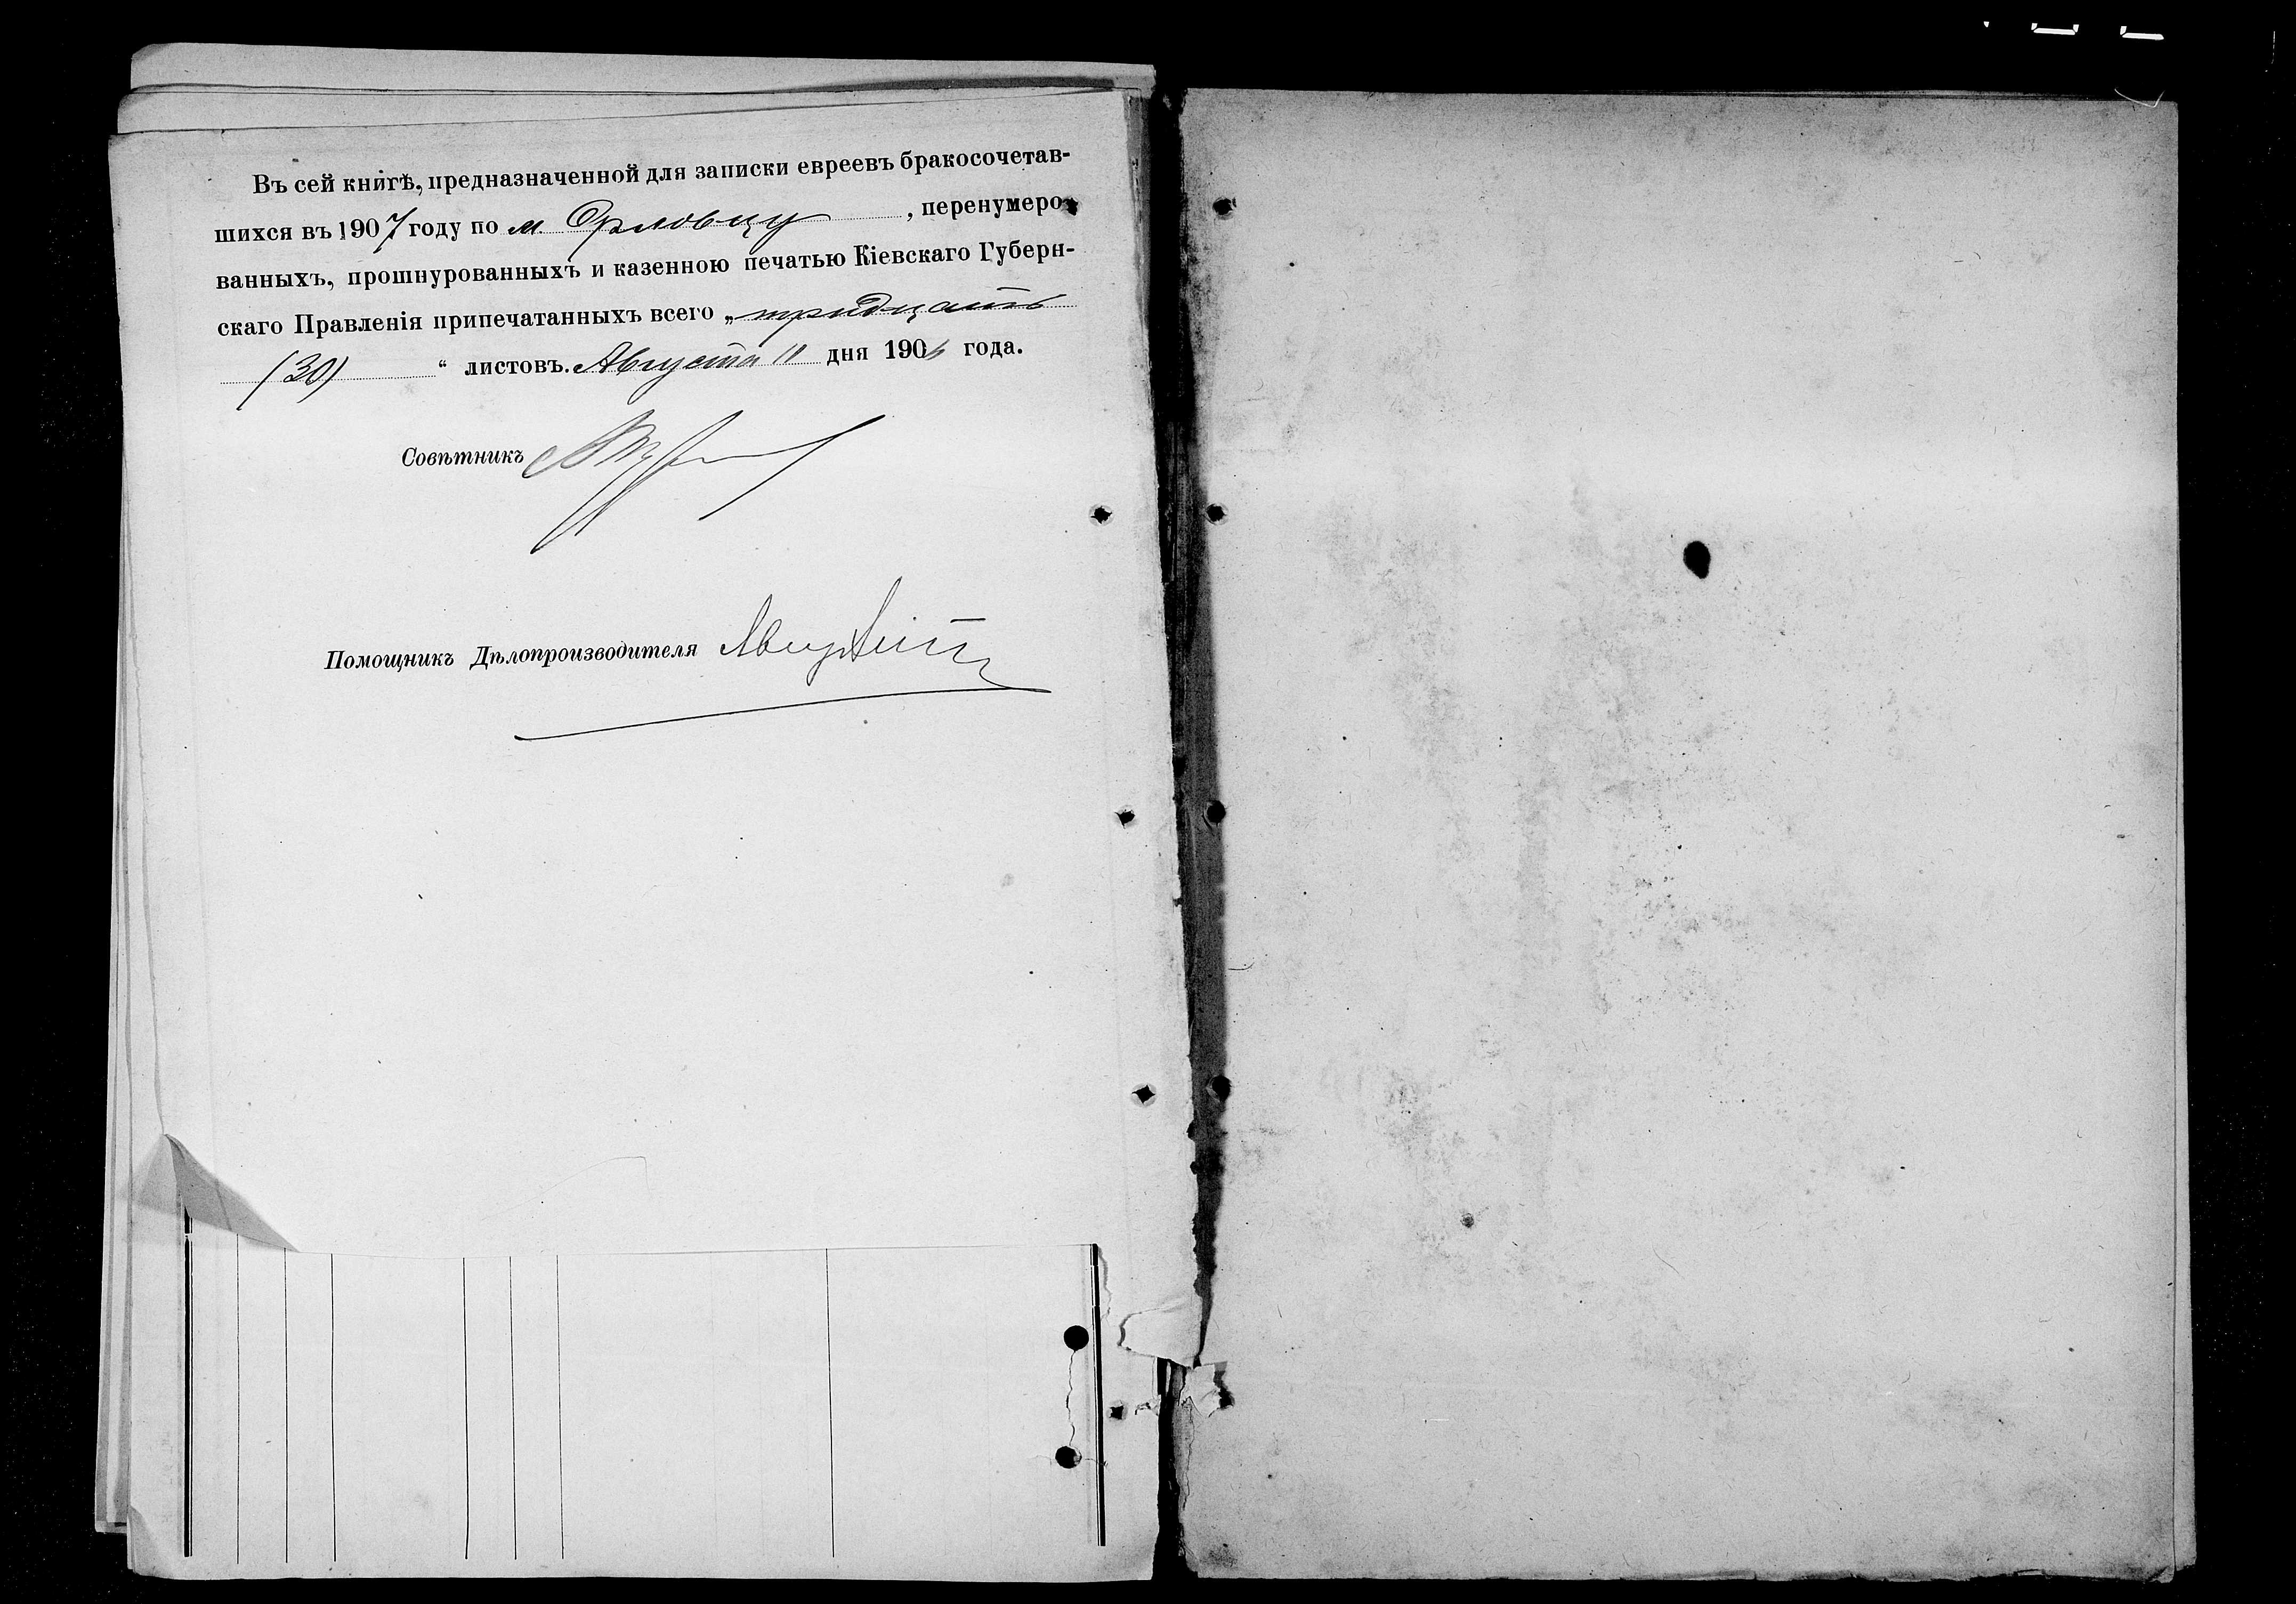 Въ сей книгѣ, предназначенной для записки евреевъ бракосочетав-
шихся въ 1907 году по м. Орловцу, перенумеро-
ванныхъ, прошнурованныхъ и казенною печатью Кіевскаго Губерн-
скаго Правленія припечатанныхъ всего „тридцать
(30)“ листовъ. Августа 11 дня 1906 года.
Совѣтникъ
Помощникъ Дѣлопроизводителя